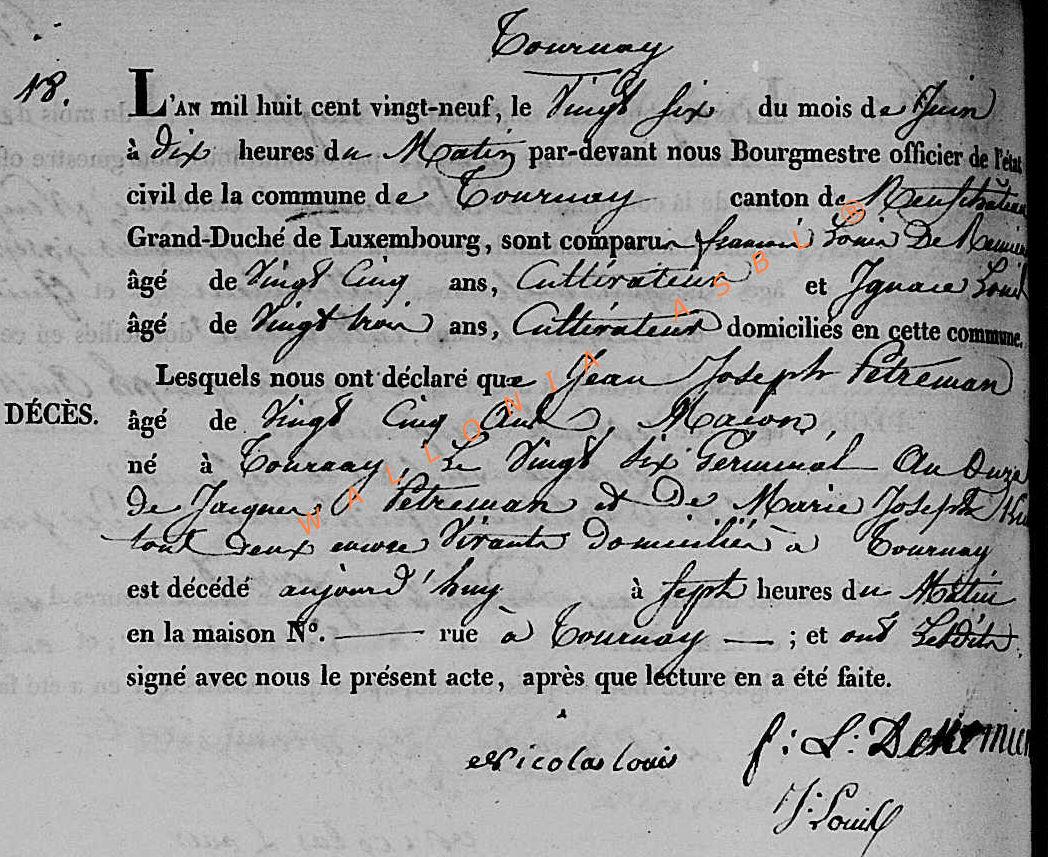 Tournay
18.
L'AN mil huit cent vingt-neuf, le Vingt Six du mois de Juin
à Dix heures du Matin par-devant nous Bourgmestre officier de l'état
civil de la commune de Tournay canton de Neufchâteau
Grand-Duché de Luxembourg, sont comparu françois Louis De
âgé de Vingt Cinq ans, Cultivateur et Ignace Louis
âgé de Vingt trois ans, Cultivateur domiciliés en cette commune.
Lesquels nous ont déclaré que Jean Joseph Petreman
DÉCÈS.
âgé de Vingt Cinq Ans, Maçon,
né à Tournay, Le Vingt Six Germinal An Onze
de Jacques Petreman et De Marie Joseph
tous deux encore Vivants Domiciliés à Tournay
est décédé aujourd'huy à Sept heures du Matin
en la maison N°. rue à Tournay ; et ont Lesdits
signé avec nous le présent acte, après que lecture en a été faite.
Nicolas louis
f: L:
J: Louis
WALLONIA ASBL ®